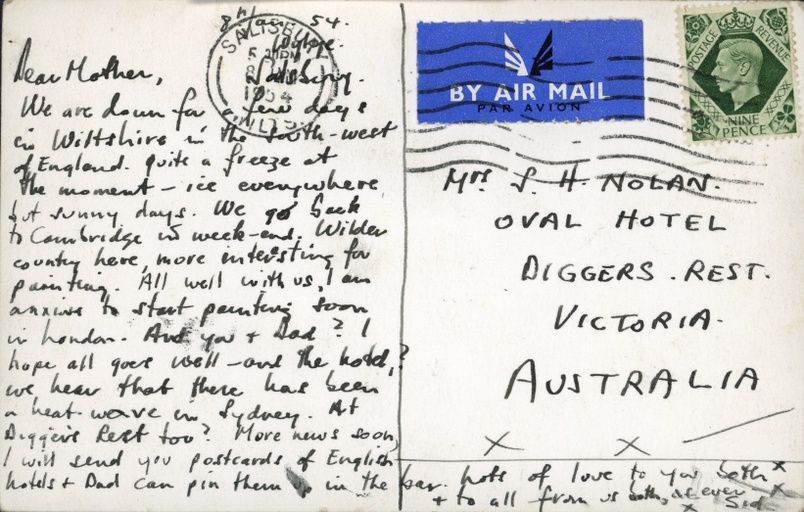 8 Jan 54.
Wylye.
Salisbury.
Dear Mother,
We are down for a few days
in Wiltshire in the south-west
of England. quite a freeze at
the moment – ice everywhere
but sunny days. We go back
to Cambridge in week-end. Wilder
country here, more interesting for
painting. All well with us, I am
anxious to start painting soon
in London. And you + Dad? I
hope all goes well – and the hotel,?
we hear that there has been
a heat-wave in Sydney. At
Diggers Rest too? More news soon,
I will send you postcards of English
hotels + Dad can pin them up in the bar. Lots of love to you both
+ to all from us both, as ever
Sid
X X
X
X
X
SALISBURY
1954
WILTS.
BY AIR MAIL
PAR AVION
POSTAGE REVENUE
NINE PENCE
Mrs S. H. NOLAN.
OVAL HOTEL
DIGGERS. REST.
VICTORIA.
AUSTRALIA